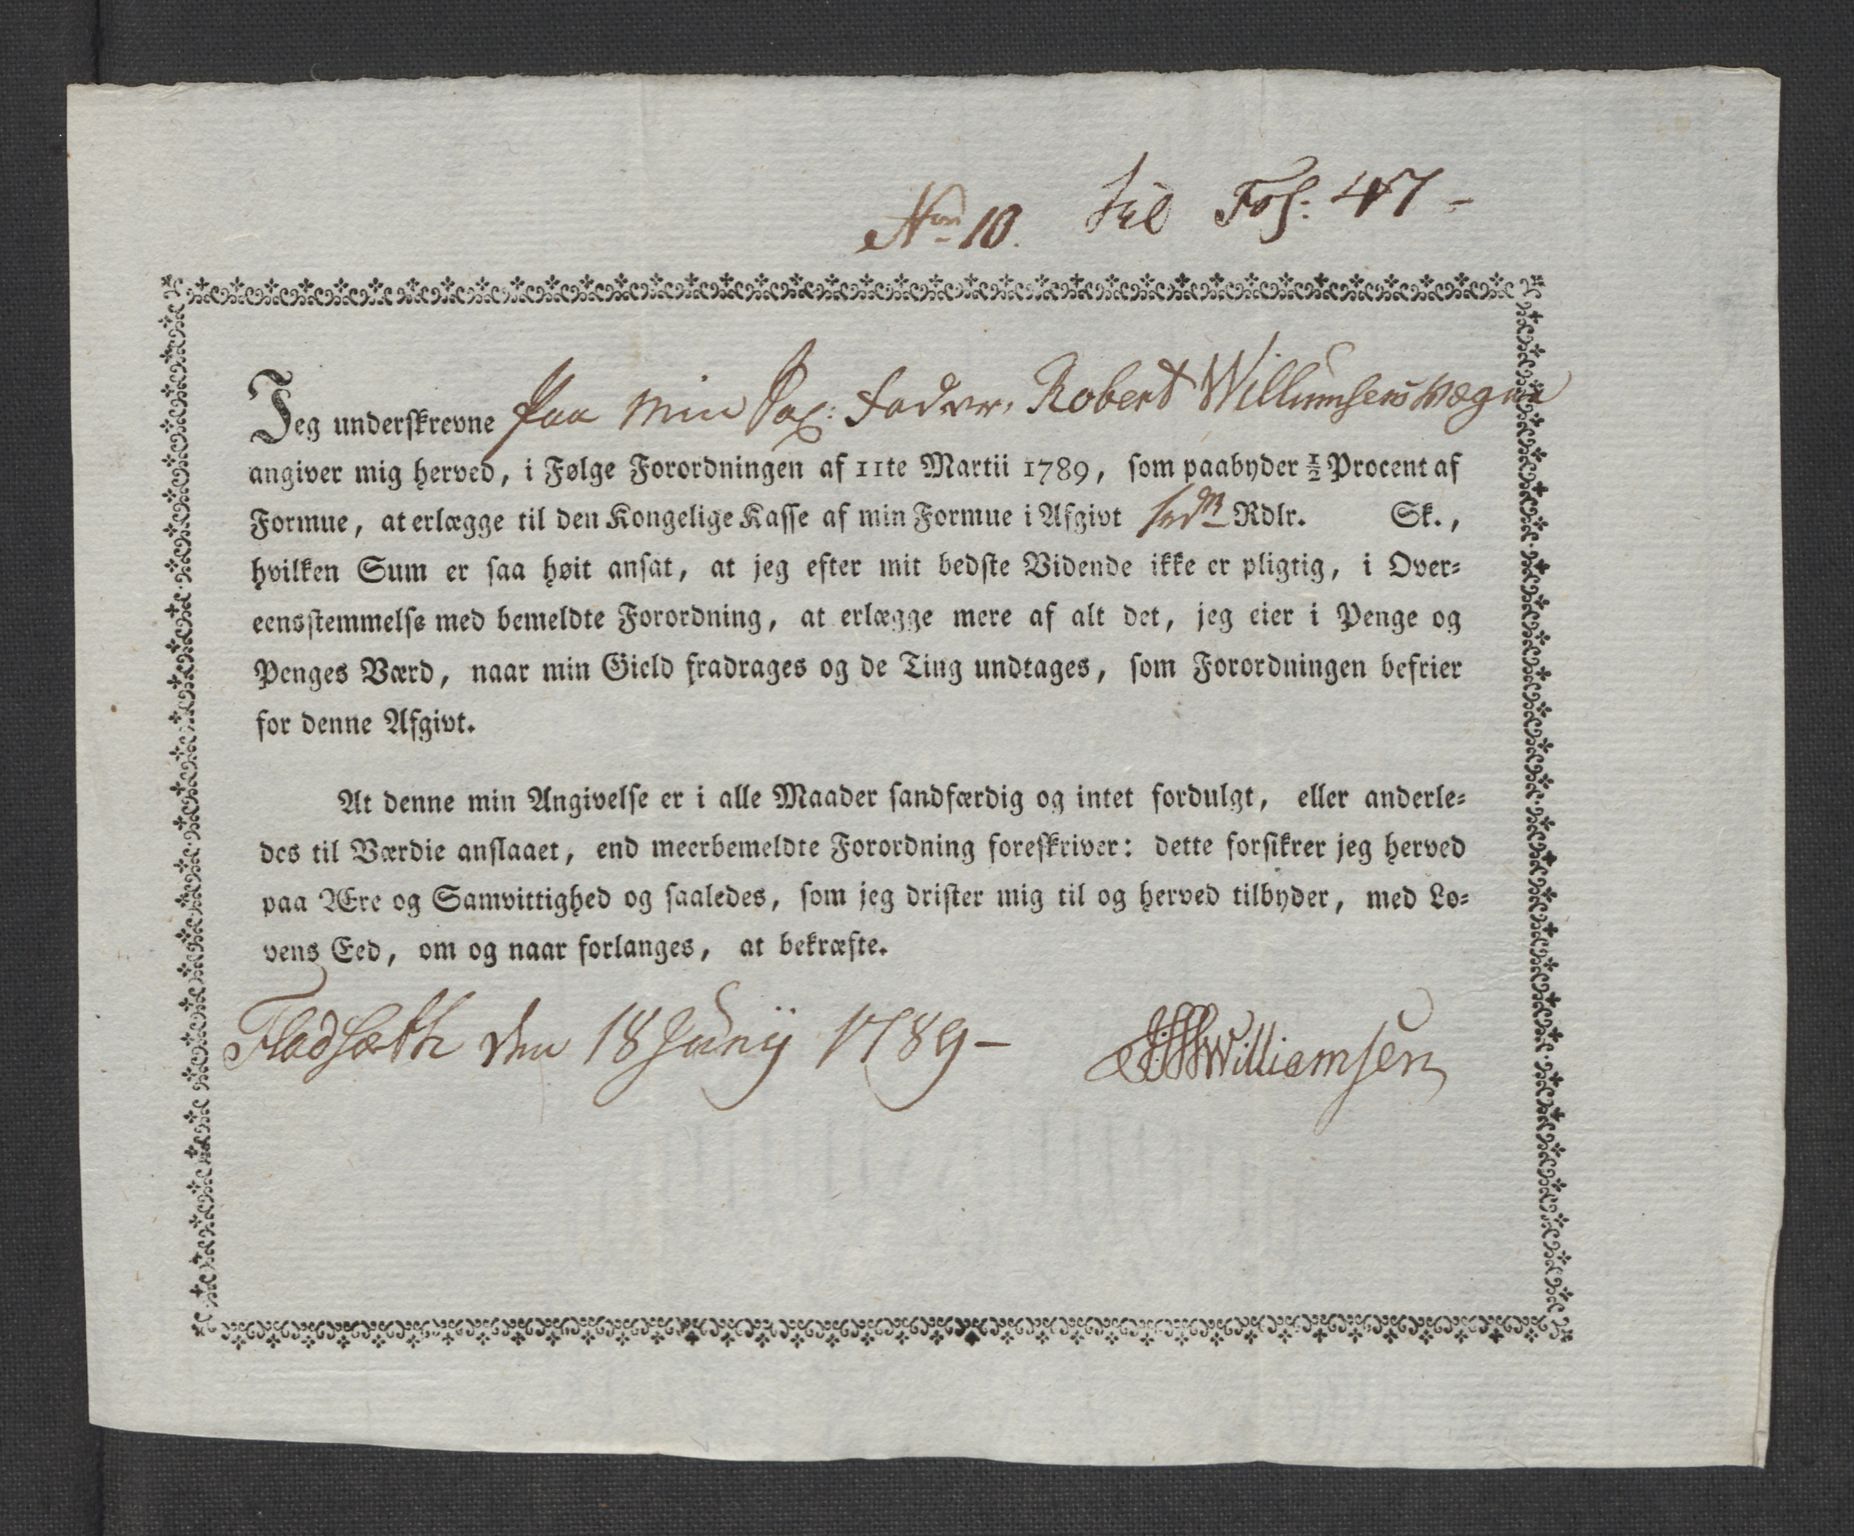 No 10. til Fol: 47 -
Jeg underskrevne Paa min Fader, Robert Willumsens Vægne
angiver mig herved, i Følge Forordningen af 11te Martii 1789, som paabyder ½ Procent af
Formue, at erlægge til den Kongelige Kasse af min Formue i Afgivt Rdlr. Sk.,
hvilken Sum er saa høit ansat, at jeg efter mit bedste Vidende ikke er pligtig, i Over-
eensstemmelse med bemeldte Forordning, at erlægge mere af alt det, jeg eier i Penge og
Penges Værd, naar min Gield fradrages og de Ting undtages, som Forordningen befrier
for denne Afgivt.
At denne min Angivelse er i alle Maader sandfærdig og intet fordulgt, eller anderle-
des til Værdie anslaaet, end meerbemeldte Forordning foreskriver: dette forsikrer jeg herved
paa Ære og Samvittighed og saaledes, som jeg drister mig til og herved tilbyder, med Lo-
vens Eed, om og naar forlanges, at bekræfte.
Fladsæth den 18 Junij 1789 - Williamsen